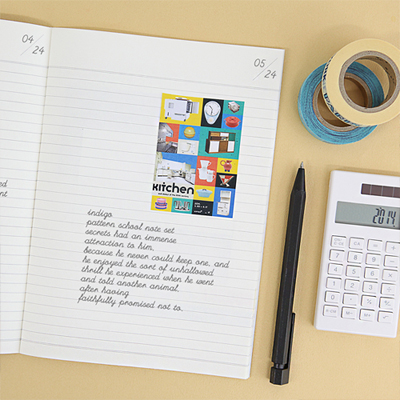 04/24
05/24
kitchen
indigo
pattern school note set
secrets had an immense
attraction to him,
because he never could keep one, and
he enjoyed the sort of unhallowed
thrill he experienced when he went
and told another animal,
after having
faithfully promised not to.
2014